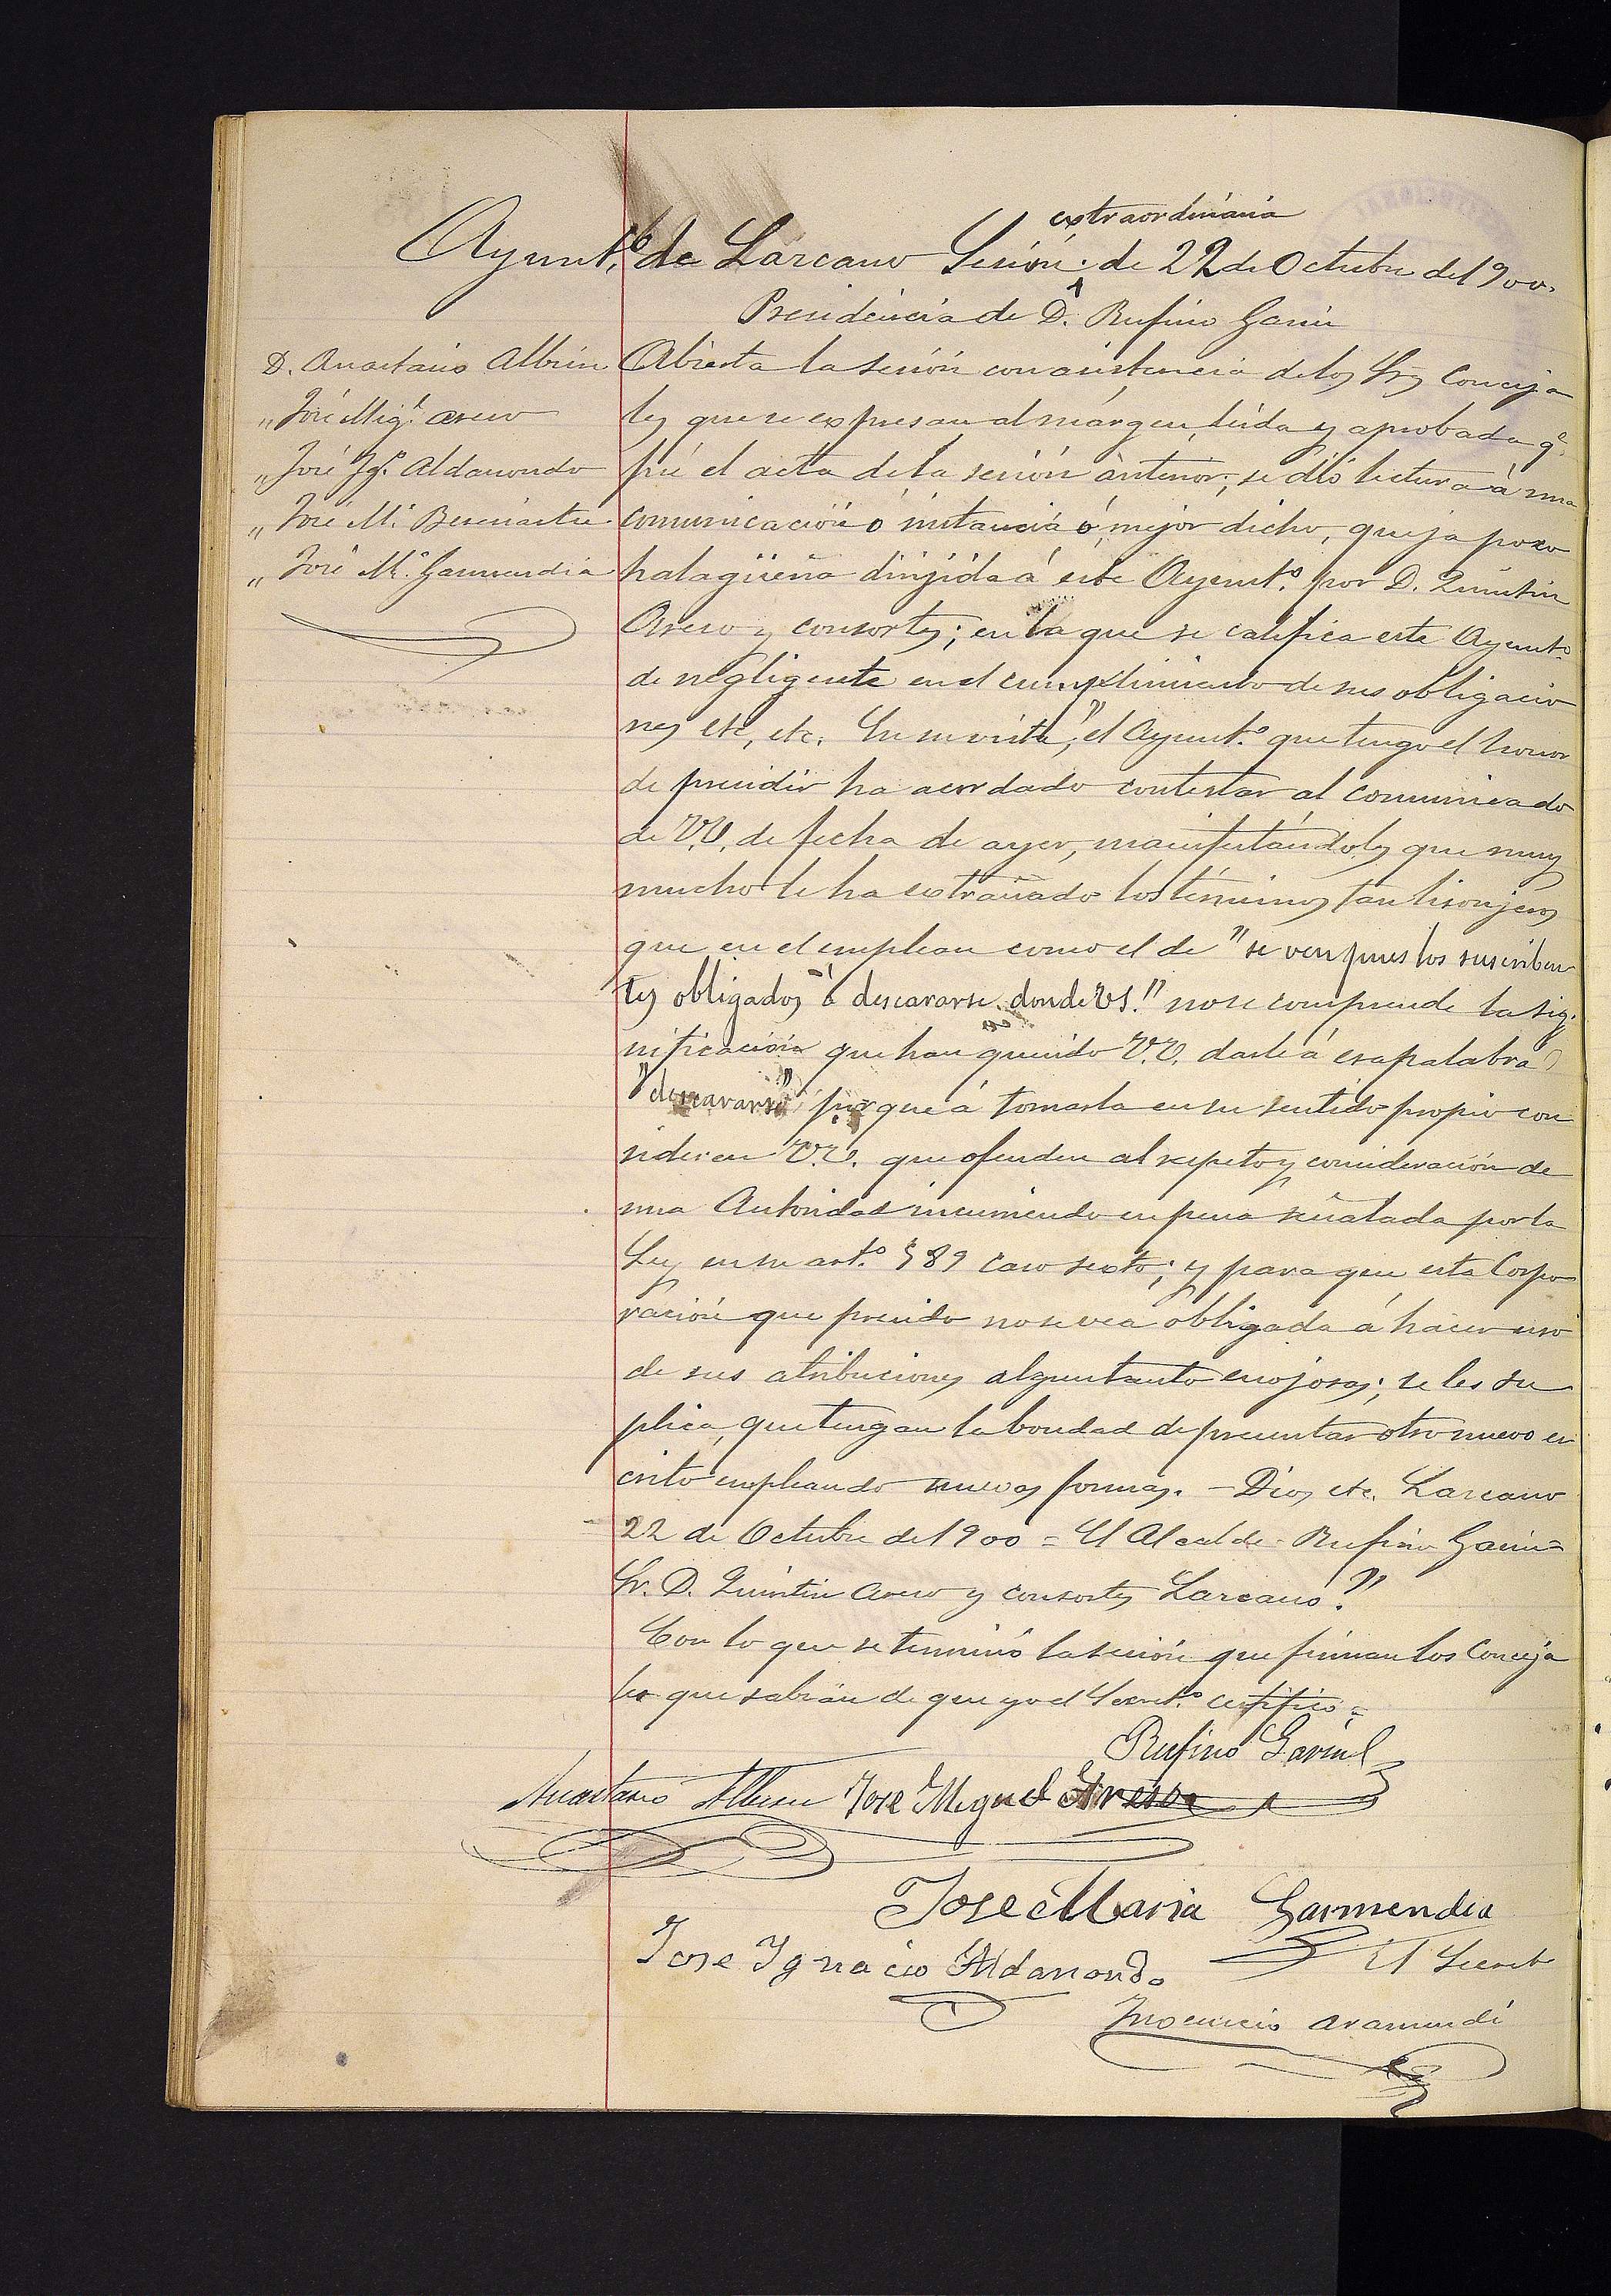 extraordinaria
Ayunt.º de Lazcano Sesión de 22 de Octubre de 1900.
Presidencia de D. Rufino Garin
D. Anastasio Albisu
" José Mig.l Aseso
" José Ig.º Aldanondo
" José M.ª Beseiartu
" José M.ª Garmendia
Abierta la sesión con asistencia de los Srs Conceja
les que se expresan al márgen, leida y aprobada q.e
fué el acta de la sesión anterior; se dió lectura á una
comunicación ó instancia ó mejor dicho, queja poco
halagüeña dirijida á este Ayunt.º por D. Quintin
Aseso y consortes; en la que se califica este Ayunt.º
de negligente en el cumplimiento de sus obligacio
nes etc, etc. En su vista, "el Ayunt.º que tengo el honor
de presidir ha acordado contestar al comunicado
de V.V. de fecha de ayer, manifestándoles que muy
mucho le ha extrañado los términos tan lisonjeros
que en el emplean como el de "se ven pues los suscriben
tes obligados á descararse donde VS." no se comprende la sig-
nificación que han querido V.V. darle á esa palabra
"descararse" porque á tomarla en su sentido propio con
sideren V.V. que ofenden al respeto y consideración de
una Autoridad incurriendo en pena señalada por la
Ley en su art.º 589 caso sexto; y para que esta Corpo
ración que presido no se vea obligada á hacer uso
de sus atribuciones algun tanto enojosas; se les su
plica, que tengan la bondad de presentar otro nuevo es
crito empleando nuevas formas. - Dios etc. Lazcano
22 de Octubre de 1900 = El Alcalde - Rufino Garin =
Sr. D. Quintin Aseso y consortes Lazcano."
Con lo que se terminó la sesión que firman los Conceja
les que sabian de que yo el Secret.º certifico =
Rufino Garin
Anastasio Albisu José Miguel Areso
Jose Maria Garmendia
Jose Ignacio Aldanondo
El Secret.º
Inocencio Aramendi